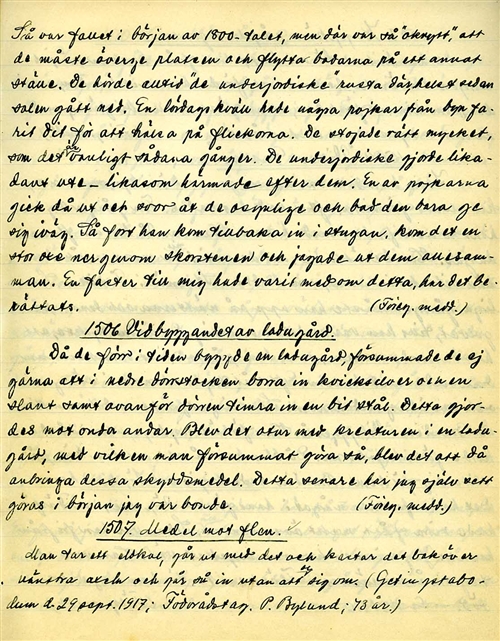 Så var fallet i början av 1800-talet, men där var så "okrytt", att
de måste överge platsen och flytta bodarna på ett annat
ställe. De hörde alltid "de underjordiske" rusta därhelst sedan
solen gått ned. En lördags kväll hade några pojkar från byn fa-
rit dit för att hälsa på flickorna. De stojade rätt mycket,
som det är vanligt sådana gånger. De underjordiske gjorde lika-
dant ute – likasom härmade efter dem. En av pojkarna
gick då ut och svor åt de osynlige och bad dem bara ge
sig iväg. Så fort han kom tillbaka in i stugan, kom det en
stor ner genom skorstenen och jagade ut dem allesam-
man. En faster till mig hade varit med om detta, har det be-
rättats. (Föreg. medd.)
1506 Vid byggandet av ladugård.
Då de förr i tiden byggde en ladugård, försummade de ej
gärna att i nedre dörrstocken borra in kvicksilver och en
slant samt ovanför dörren timra in en bit stål. Detta gjor-
des mot onda andar. Blev det otur med kreaturen i en ladu-
gård, med vilken man försummat göra så, blev det att då
anbringa dessa skyddsmedel. Detta senare har jag själv sett
göras i början jag var bonde. (Föreg. medd.)
1507. Medel mot flen.
Man tar ett eldkol, går ut med det och kastar det bak över
vänstra axeln och går så in utan att se sig om. (Getingstabo-
dum d. 29 sept. 1917; Födorådstag. P. Bylund; 73 år.)